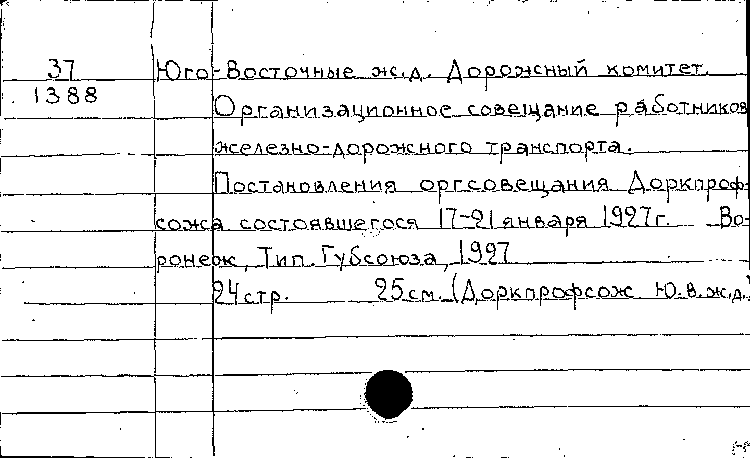 37
1388
Юго-Восточные ж.д. Дорожный комитет.
Организационное совещание работников
железно-дорожного транспорта.
Постановления оргсовещания Доркпроф-
сожа состоявшегося 17-21 января 1927г. Во-
ронеж, Тип. Губсоюза, 1927
24 стр. 25 см. (Доркпрофсож Ю.В.ж.д.)